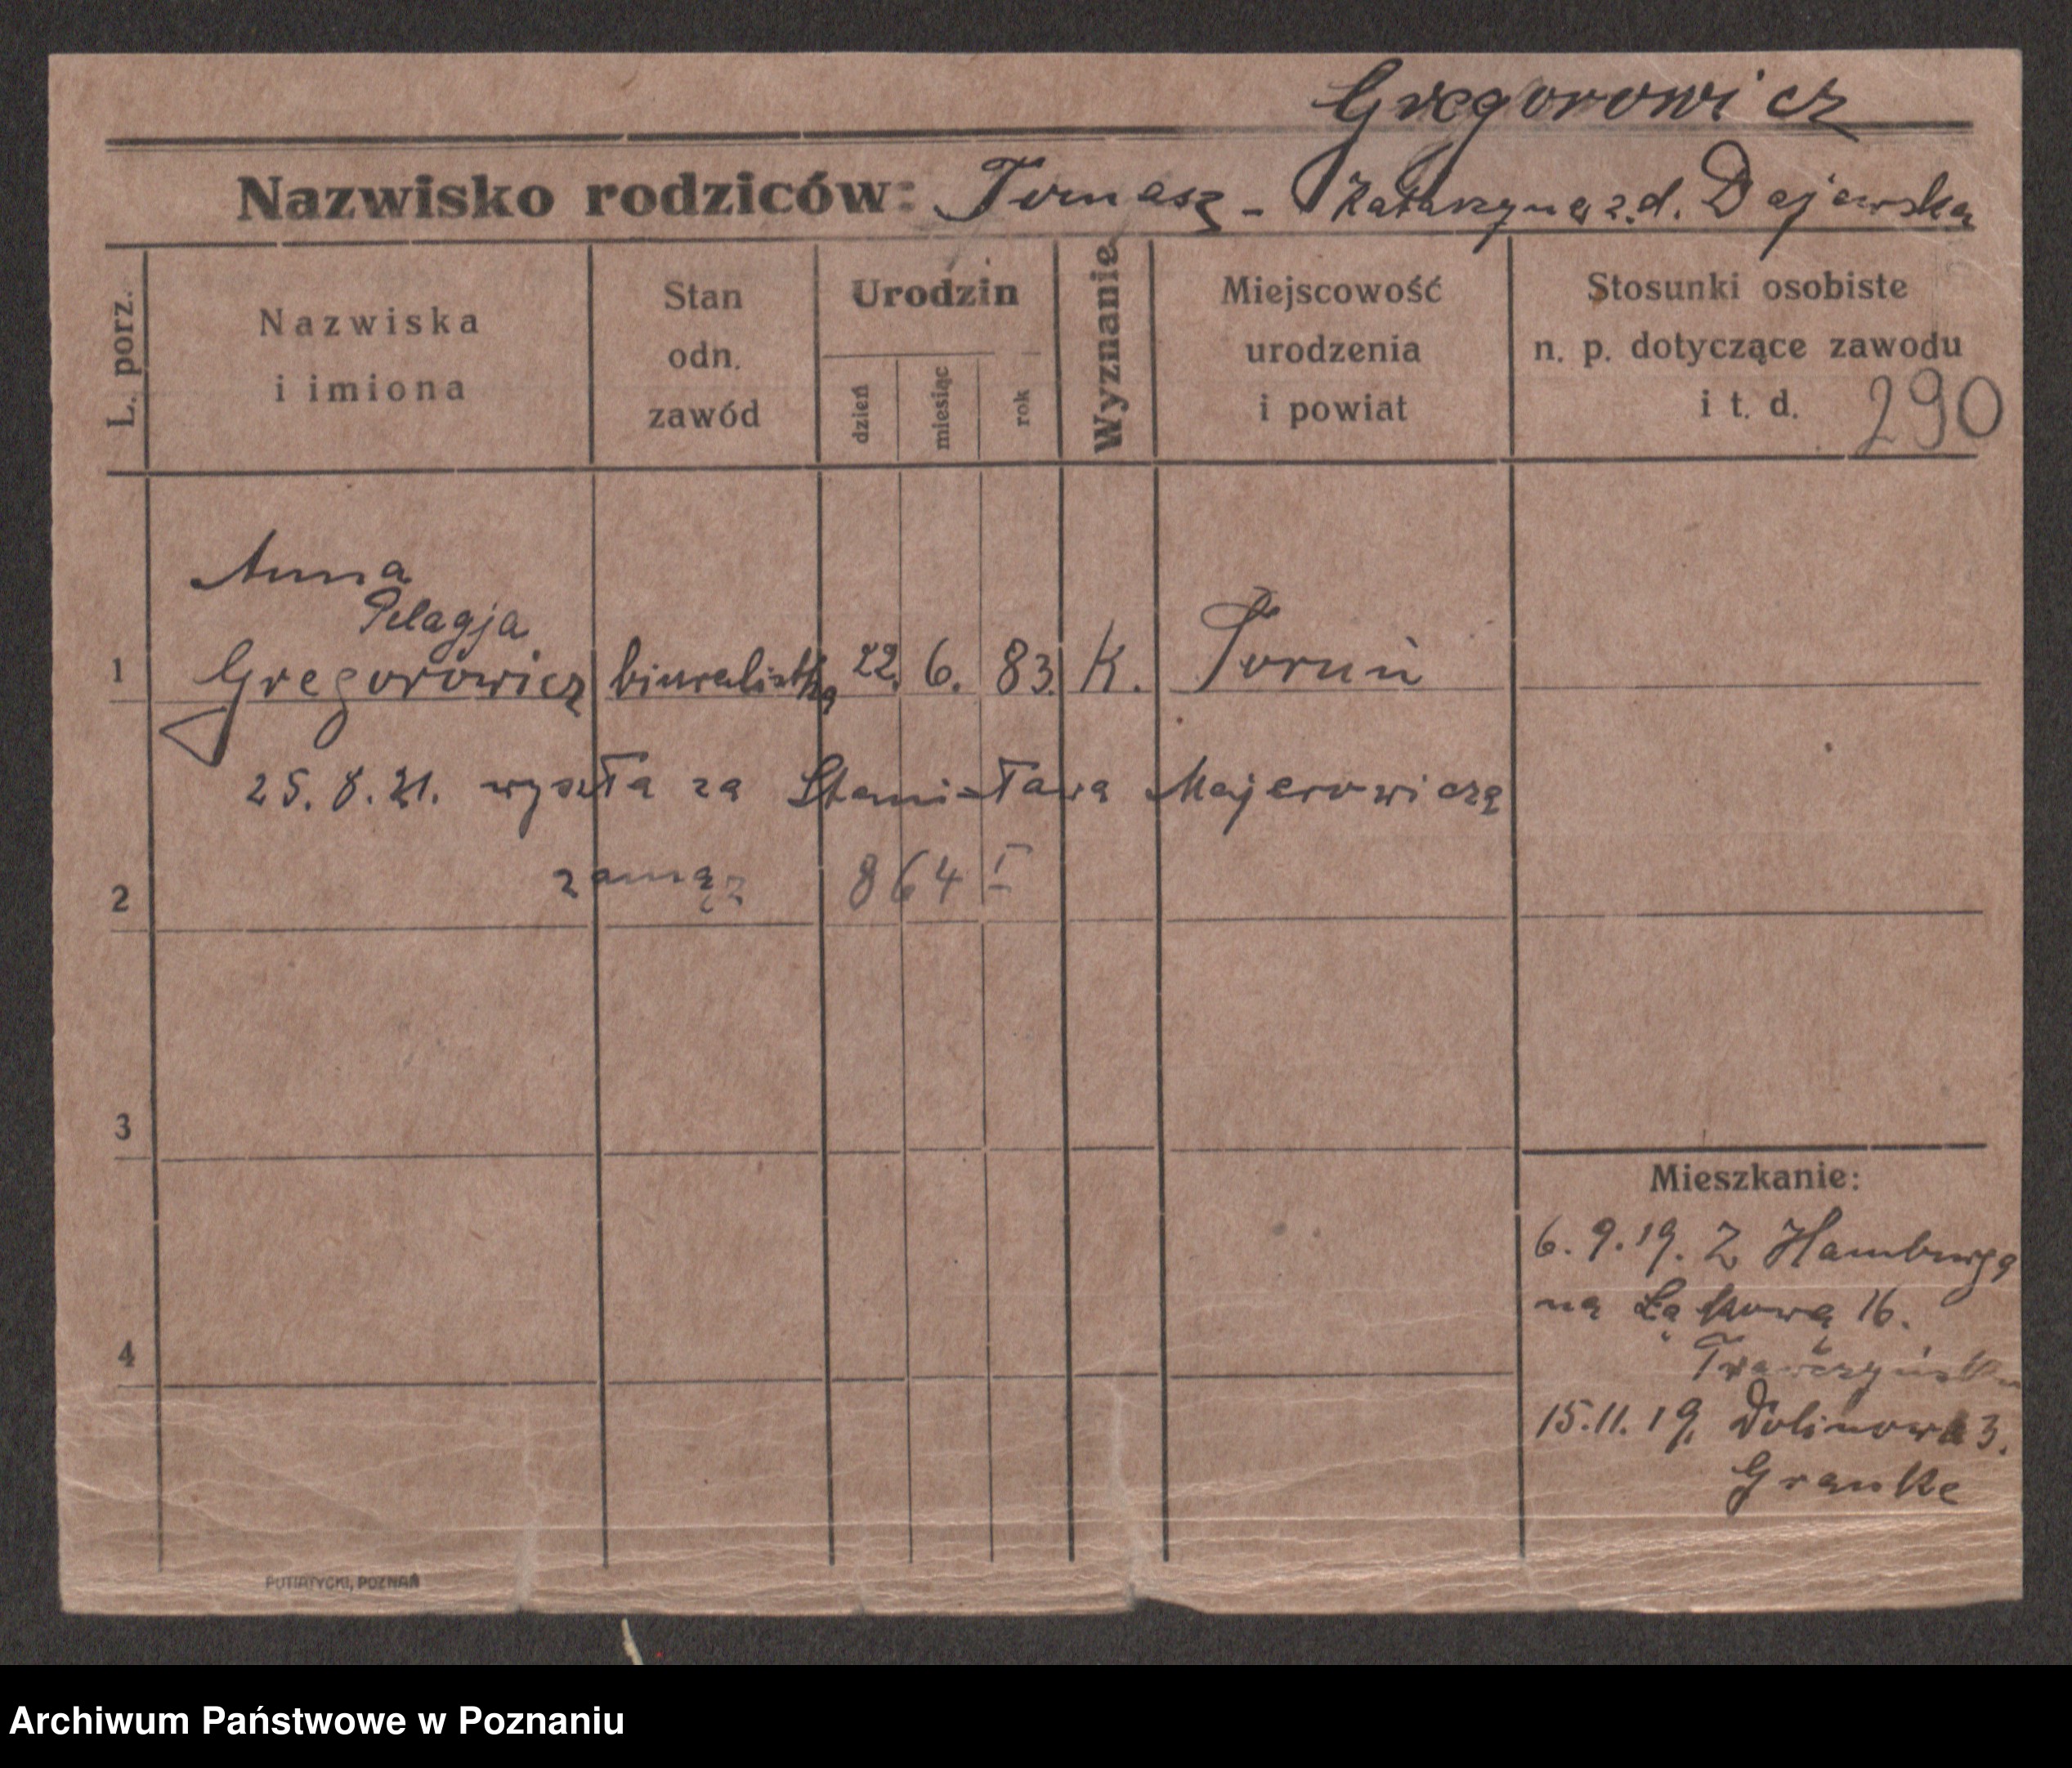 Gregorowicz
Nazwisko rodziców: Tomasz - Katarzyna z.d. Dajewska
L. porz.
Nazwiska
i imiona
Stan
odn.
zawód
Urodzin
dzień
miesiąc
rok
Wyznanie
Miejscowość
urodzenia
i powiat
Stosunki osobiste
n. p. dotyczące zawodu
i t. d. 290
Anna
Pelagja
1 Gregorowicz biuralistka 22. 6. 83. K. Toruń
25. 8. 21. wyszła za Stanisława Majerowicza
2 zamąż 864 I
3
Mieszkanie:
6. 9. 19. Z Hamburga
na Łąkową 16.
4
15. 11. 19. Dolinowa 3.
Granke
PUTIATYCKI, POZNAŃ
Archiwum Państwowe w Poznaniu